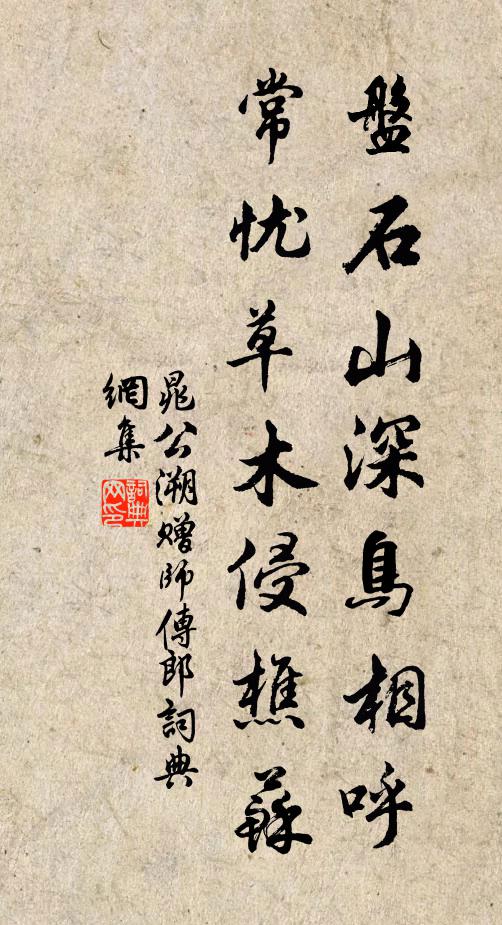 盤石山深鳥相呼
常忧草木侵樵蘇
晁公溯贈師傅郎詞典
網集
詞典
网印